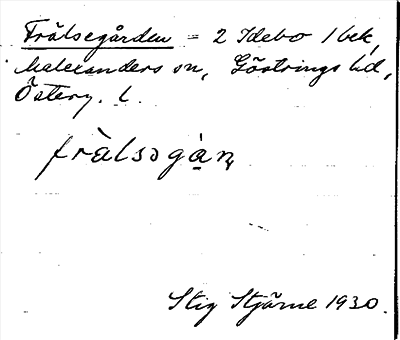 Frälsegården = 2 Idebo 1 bek,
Malexanders sn, Göstrings hd,
Österg. l.
frälsogán
Stig Stjärne 1930.